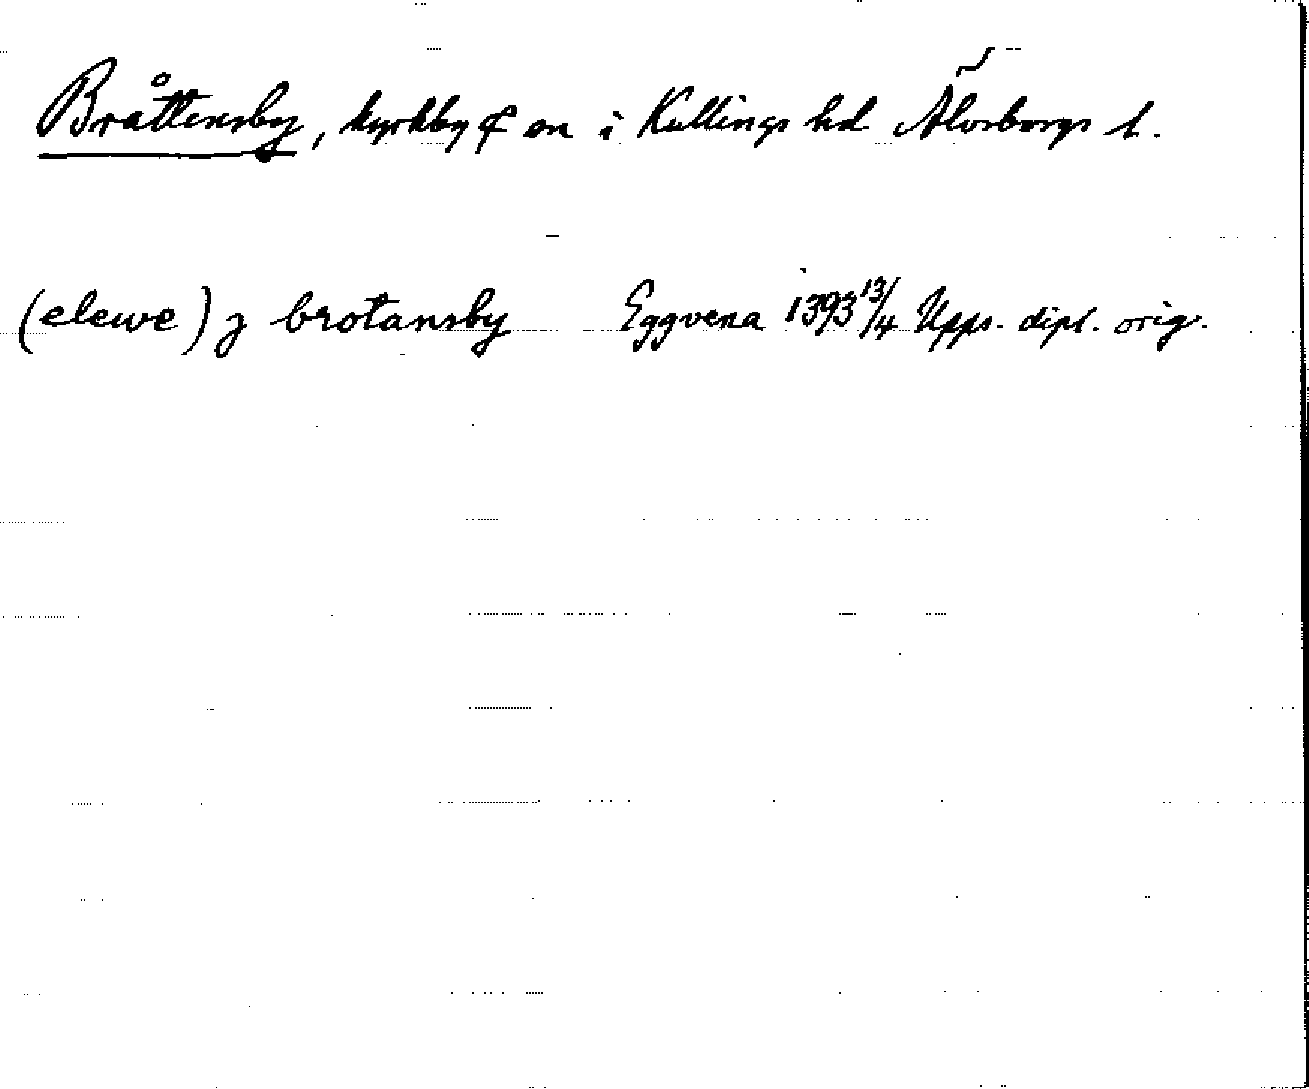 Bråttensby, kyrkby & sn i Kullings hd Älvsborgs l.
(elewe) j brotansby Eggvena 1393 13/4 Upps. dipl. orig.